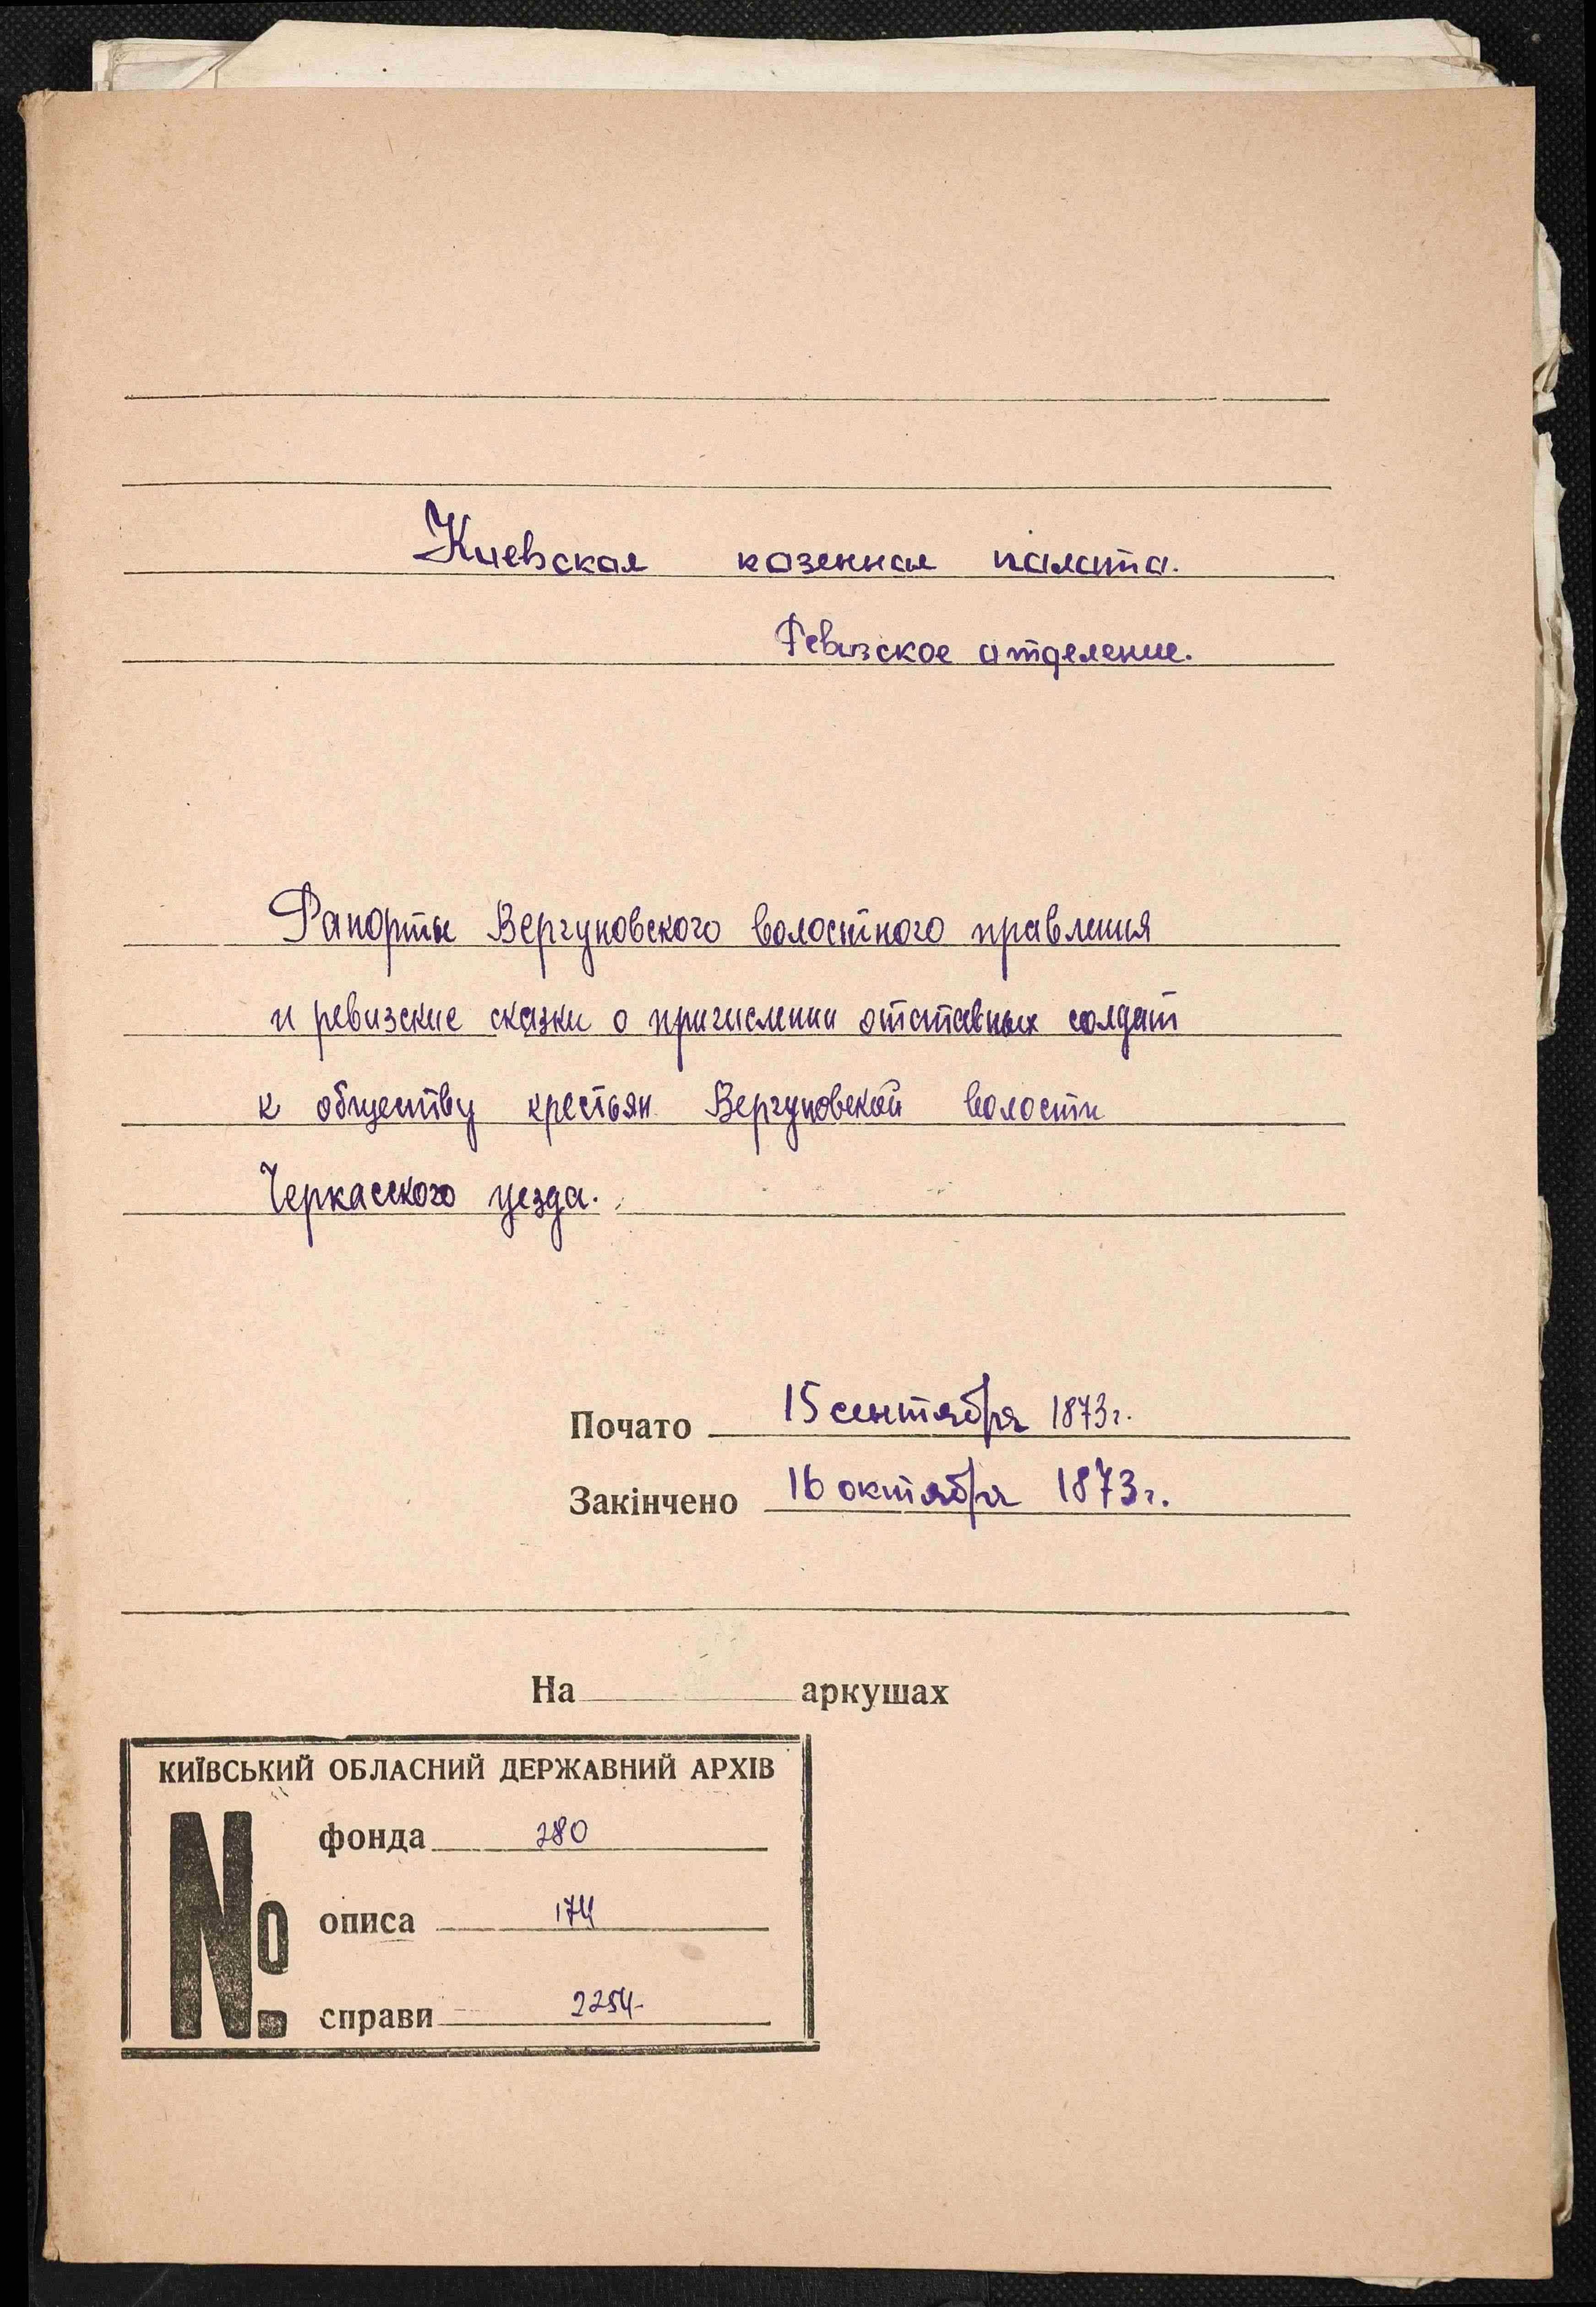 Киевская казенная палата.
Ревизское отделение.
Рапорты Вергуновского волостного правления
и ревизские сказки о причислении отставных солдат
к обществу крестьян Вергуновской волости
Черкасского уезда.
Почато 15 сентября 1873г.
Закінчено 16 октября 1873г.
На аркушах
КИЇВСЬКИЙ ОБЛАСНИЙ ДЕРЖАВНИЙ АРХІВ
№
фонда 280
описа 174
справи 2254